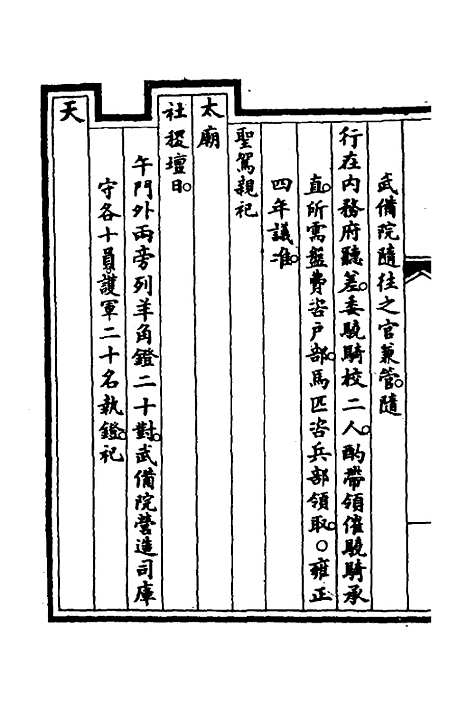 武備院隨往之官兼管。隨
行在內務府聽差。委驍騎校二人。酌帶領催驍騎承
直。所需盤費咨戶部。馬匹咨兵部領取。○雍正
四年議准。
聖駕親祀
太廟
社稷壇日。
午門外兩旁列羊角鐙二十對。武備院營造司庫
守各十員護軍二十名執鐙。祀
天